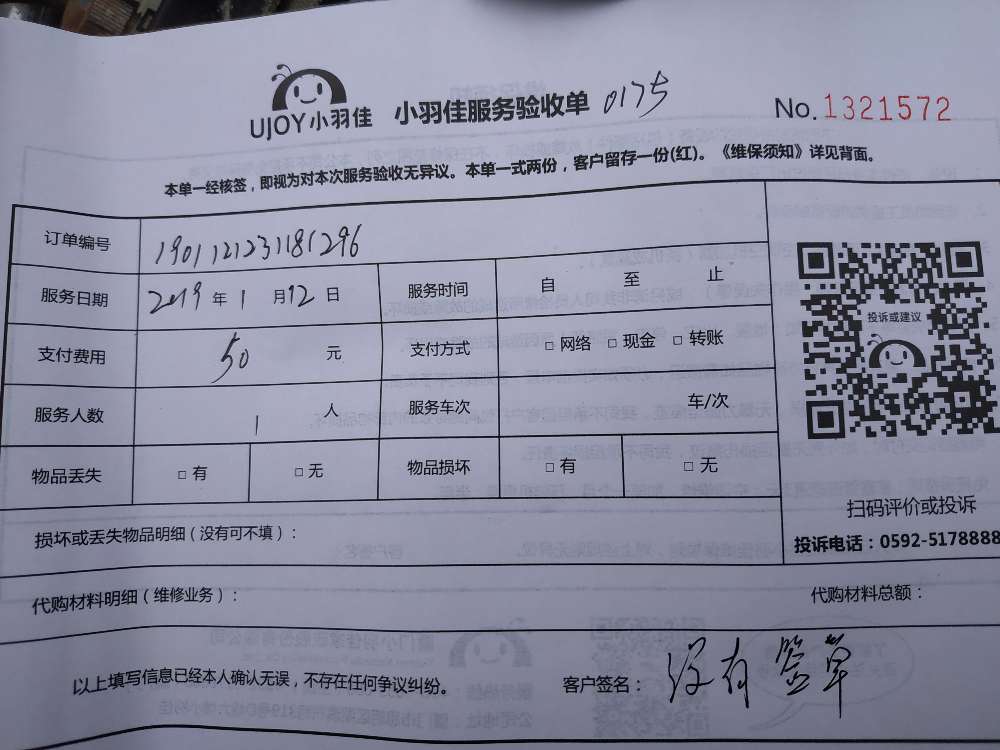 UJOY小羽佳 小羽佳服务验收单 0175 No.1321572
本单一经核签，即视为对本次服务验收无异议。本单一式两份，客户留存一份(红)。《维保须知》详见背面。
订单编号 1901121231181296
服务日期 2019 年 1 月 12 日 服务时间 自 至 止
支付费用 50 元 支付方式 □ 网络 □ 现金 □ 转账
服务人数 1 人 服务车次 车/次
物品丢失 □ 有 □ 无 物品损坏 □ 有 □ 无
投诉或建议
扫码评价或投诉
投诉电话：0592-5178888
损坏或丢失物品明细（没有可不填）：
代购材料明细（维修业务）： 代购材料总额：
以上填写信息已经本人确认无误，不存在任何争议纠纷。 客户签名： 没有签单